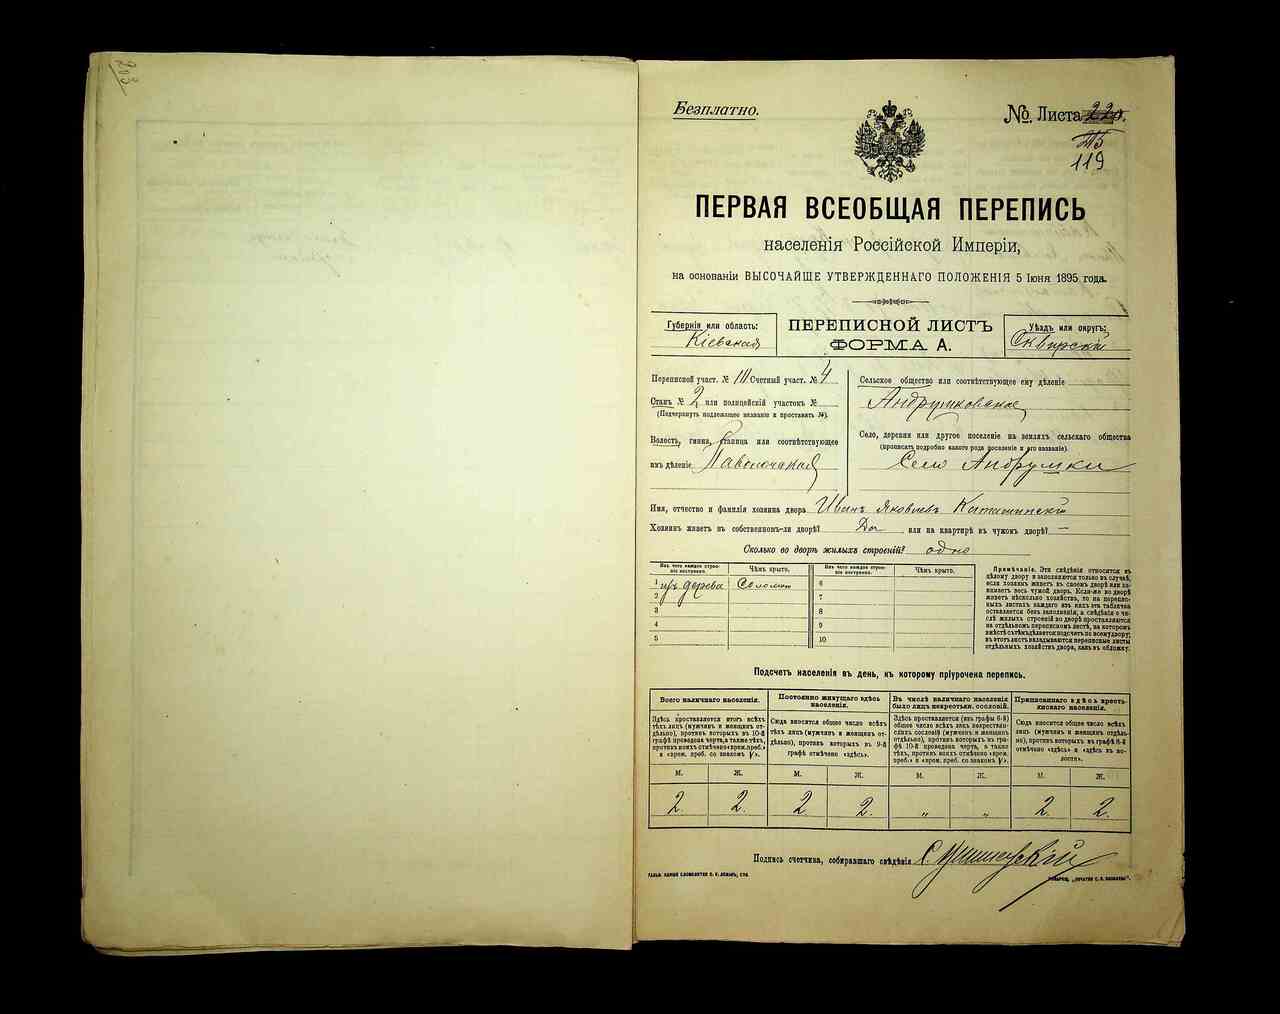 Безплатно.
№ Листа
119
ПЕРВАЯ ВСЕОБЩАЯ ПЕРЕПИСЬ
населенія Россійской Имперіи,
на основаніи ВЫСОЧАЙШЕ УТВЕРЖДЕННАГО ПОЛОЖЕНІЯ 5 Іюня 1895 года.
Губернія или область:
Кіевская
ПЕРЕПИСНОЙ ЛИСТЪ
ФОРМА А.
Уѣздъ или округъ:
Сквирскій
Переписной участ. № III Счетный участ. № 4
Станъ № 2 или полицейскій участокъ №
(Подчеркнуть надлежащее названіе и проставить №).
Волость, гмина, станица или соотвѣтствующее
имъ дѣленіе Паволочская
Сельское общество или соотвѣтствующее ему дѣленіе
Андрушковское
Село, деревня или другое поселеніе на земляхъ сельскаго общества
(прописать подробно какого рода поселеніе и его названіе).
Село Андрушки
Имя, отчество и фамилія хозяина двора Иванъ Яковлевъ Каташинскій
Хозяинъ живетъ въ собственномъ-ли дворѣ? Да или на квартирѣ въ чужомъ дворѣ? —
Сколько во дворѣ жилыхъ строеній? одно
Изъ чего каждое строеніе построено. Чѣмъ крыто. Изъ чего каждое строеніе построено. Чѣмъ крыто.
1 изъ дерева Соломой 6
2 7
3 8
4 9
5 10
Примѣчаніе. Эти свѣдѣнія относятся къ
цѣлому двору и заполняются только въ случаѣ,
если хозяинъ живетъ въ своемъ дворѣ или занимаетъ
весь чужой дворъ. Если-же во дворѣ
живетъ нѣсколько хозяйствъ, то на переписныхъ
листахъ каждаго изъ нихъ эта табличка
оставляется безъ заполненія, а свѣдѣнія о числѣ
жилыхъ строеній во дворѣ проставляются
на отдѣльномъ переписномъ листѣ, на которомъ
вмѣстѣ съ тѣмъ дѣлается подсчетъ по всему двору;
въ этотъ листъ вкладываются переписные листы
отдѣльныхъ хозяйствъ двора, какъ въ обложку.
Подсчетъ населенія въ день, къ которому пріурочена перепись.
Всего наличнаго населенія.
Здѣсь проставляется итогъ всѣхъ
тѣхъ лицъ (мужчин и женщинъ отдѣльно),
противъ которыхъ въ 10-й
графѣ проведена черта, а также тѣхъ,
противъ коихъ отмѣчено «врем. преб.»
и «врем. преб. со знакомъ V».
Постоянно живущаго здѣсь
населенія.
Сюда вносится общее число всѣхъ
тѣхъ лицъ (мужчинъ и женщинъ отдѣльно),
противъ которыхъ въ 9-й
графѣ отмѣчено «здѣсь».
Въ числѣ наличнаго населенія
было лицъ некрестьян. сословій.
Здѣсь проставляется (изъ графы 6-й)
общее число всѣхъ лицъ некрестьянскихъ
сословій (мужчинъ и женщинъ
отдѣльно), противъ которыхъ въ графѣ
10-й проведена черта, а также
тѣхъ, противъ коихъ отмѣчено «врем.
преб.» и «врем. преб. со знакомъ V».
Приписаннаго здѣсь крестьянскаго
населенія.
Сюда вносится общее число всѣхъ
лицъ (мужчинъ и женщинъ отдѣльно),
противъ которыхъ въ графѣ 8-й
отмѣчено «здѣсь» и «здѣсь въ волости».
М. Ж. М. Ж. М. Ж. М. Ж.
2. 2. 2 2. „ „ 2. 2.
Подпись счетчика, собиравшаго свѣдѣнія